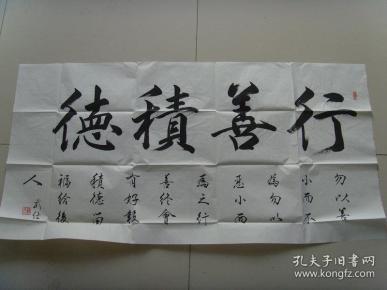 行善積德
勿以善
小而不
為勿以
惡小而
為之行
善終會
有好報
積德留
福給後
人
孔夫子旧书网